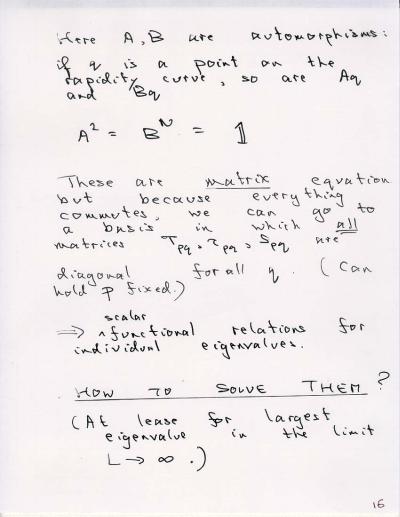 Here A, B are automorphisms:
if q is a point on the
rapidity curve, so are Aq
and Bq
A² = Bᴺ = 1
These are matrix equation
but because everything
commutes, we can go to
a basis in which all
matrices Tpq, τpq, Spq are
diagonal for all q. (Can
hold p fixed.)
scalar
⇒ ^ functional relations for
individual eigenvalues.
HOW TO SOLVE THEM?
(At lease for largest
eigenvalue in the limit
L → ∞.)
16